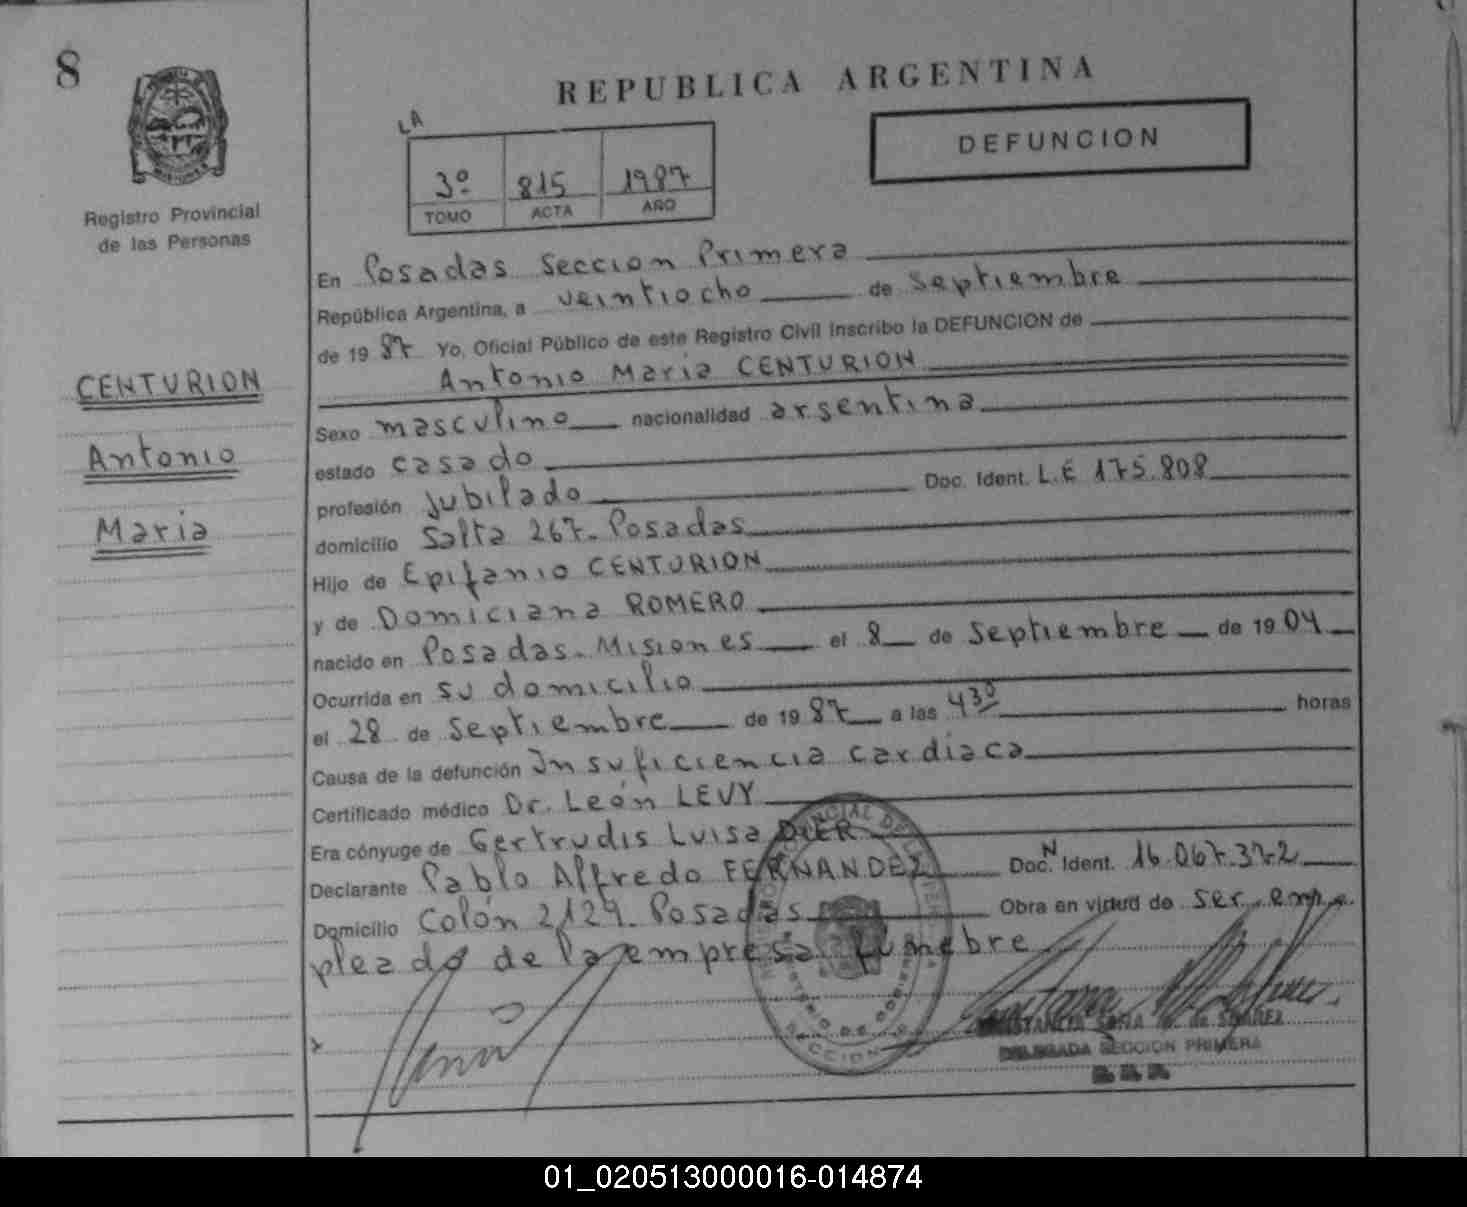 8
REPUBLICA ARGENTINA
LA
DEFUNCION
3º 815 1987
TOMO ACTA AÑO
Registro Provincial
de las Personas
CENTURION
Antonio
Maria
En Posadas Seccion Primera
República Argentina, a veintiocho de Septiembre
de 1987 Yo, Oficial Público de este Registro Civil inscribo la DEFUNCION de
Antonio Maria CENTURION
Sexo masculino nacionalidad argentina
estado casado
profesión jubilado Doc. Ident. L.E 175.808
domicilio Salta 267. Posadas
Hijo de Epifanio CENTURION
y de Domiciana ROMERO
nacido en Posadas. Misiones el 8 de Septiembre de 1904
Ocurrida en su domicilio
el 28 de Septiembre de 1987 a las 4 30 horas
Causa de la defunción Insuficiencia cardiaca
Certificado médico Dr. León LEVY
Era cónyuge de Gertrudis Luisa DIER
Declarante Pablo Alfredo FERNANDEZ Doc. N Ident. 16.067.372
Domicilio Colón 2129. Posadas Obra en virtud de ser em
pleado de la empresa funebre
DELEGADA SECCION PRIMERA
01_020513000016-014874